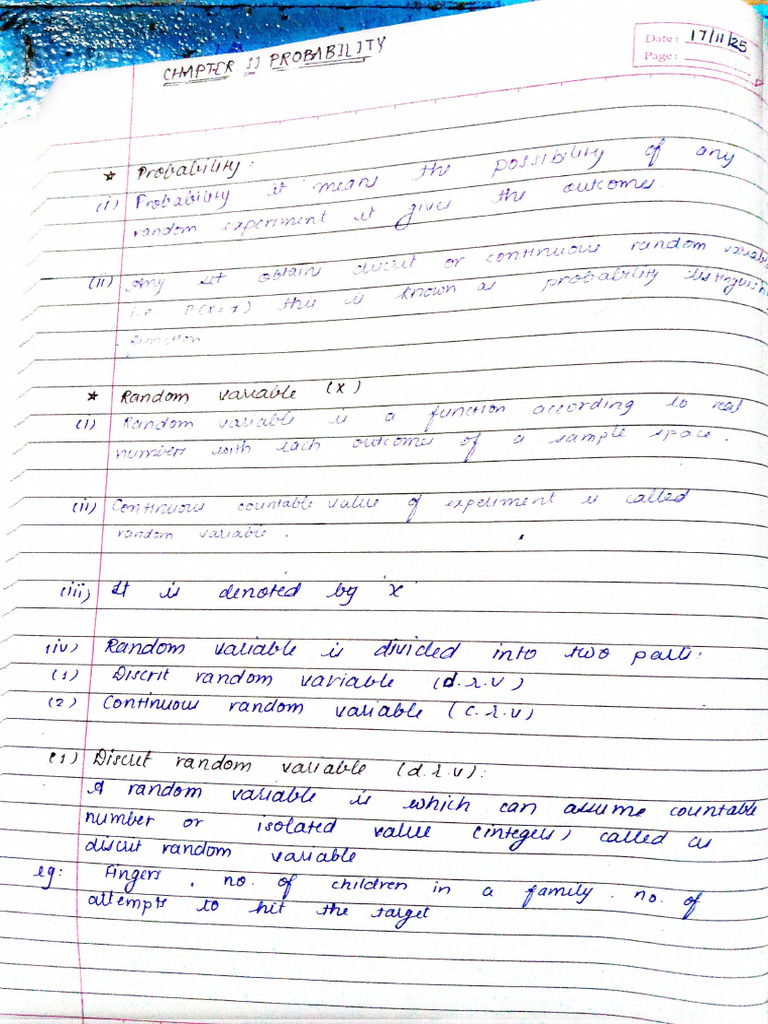 Date: 17/11/25
Page:
CHAPTER 11 PROBABILITY
* Probability:
(i) Probability it means the possibility of any
random experiment it gives the outcomes.
(ii) Any set obtains discret or continuous random variable
i.e. P(X=x) this is known as probability distinguish
function
* Random variable (X)
(i) Random variable is a function according to real
numbers with each outcomes of a sample space.
(ii) Continuous countable value of experiment is called
random variable.
(iii) It is denoted by 'x'
(iv) Random variable is divided into two parts:
(1) Discrit random variable (d.r.v)
(2) Continuous random variable (c.r.v)
(1) Discret random variable (d.r.v):
A random variable is which can assume countable
number or isolated value (integers) called as
discut random variable
eg: Fingers, no. of children in a family. no. of
attempts to hit the target